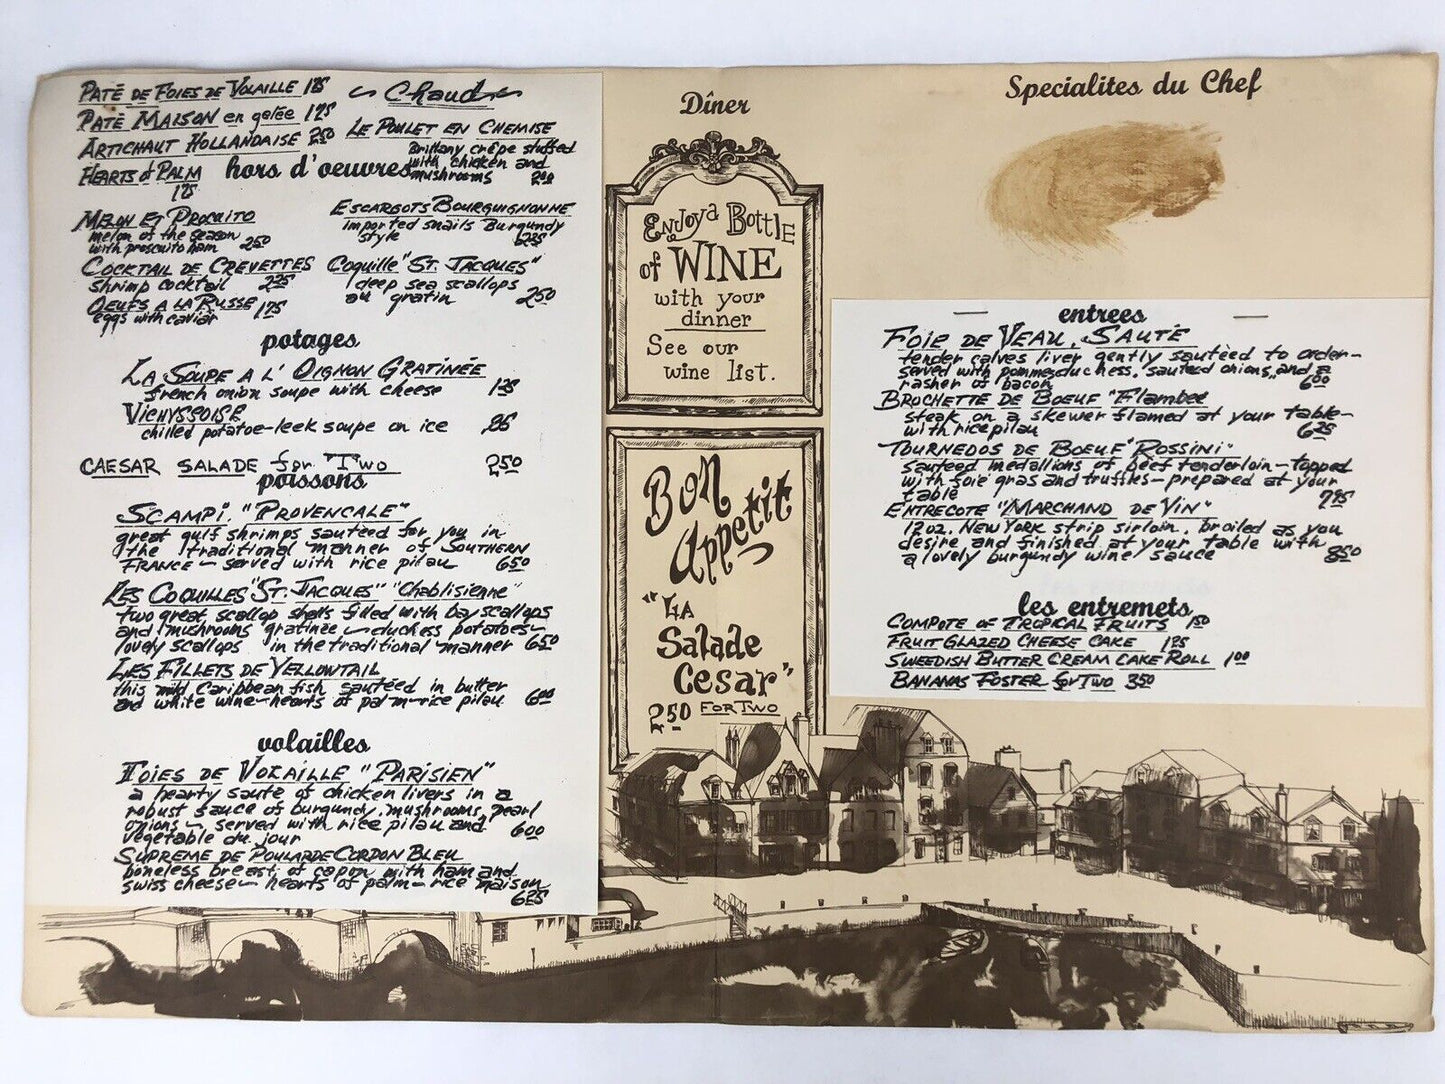 PATÉ DE FOIES DE VOLAILLE 1.75
PATÉ MAISON en gelée 1.75
ARTICHAUT HOLLANDAISE 2.50
HEARTS of PALM
1.75
hors d'oeuvres
MELON ET PROCUITO
melon of the season
with proscuito ham 2.50
COCKTAIL DE CREVETTES
shrimp cocktail 2.25
OEUFS A LA RUSSE 1.75
eggs with caviar
Chaud
LE POULET EN CHEMISE
Brittany crêpe stuffed
with chicken and
mushrooms 2.00
ESCARGOTS BOURGUIGNONNE
imported snails Burgundy
style
Coquille "ST. JACQUES"
deep sea scallops
au gratin 2.50
potages
LA SOUPE A L' OIGNON GRATINÉE
french onion soupe with cheese 1.25
VICHYSSOISE
chilled potatoe-leek soupe on ice .95
CAESAR SALADE for "TWO 2.50
poissons
SCAMPI, "PROVENCALE"
great gulf shrimps sauteed for you in
the traditional manner of SOUTHERN
FRANCE - served with rice pilau 6.50
LES COQUILLES "ST. JACQUES" "Chablisienne"
two great scallop shells filled with bay scallops
and mushrooms gratinee - duchess potatoes -
lovely scallops in the traditional manner 6.50
LES FILLETS DE YELLOWTAIL
this mild Caribbean fish sautéed in butter
and white wine - hearts of palm - rice pilau 6.00
volailles
FOIES DE VOLAILLE "PARISIEN"
a hearty sauté of chicken livers in a
robust sauce of burgundy, mushrooms, pearl
onions - served with rice pilau and
vegetable du jour 6.00
SUPREME DE POULARDE CORDON BLEU
boneless breast of capon with ham and
swiss cheese - hearts of palm - rice maison
6.25
Dîner
ENJOY a BOTTLE
of WINE
with your
dinner
See our
wine list.
Bon
Appetit
"LA
Salade
Cesar"
2.50 FOR TWO
Specialites du Chef
entrees
FOIE DE VEAU, SAUTÉ
tender calves liver gently sautéed to order -
served with pommes duchess, sauteed onions, and a
rasher of bacon 6.00
BROCHETTE DE BOEUF "Flambee
steak on a skewer flamed at your table -
with rice pilau 6.25
TOURNEDOS DE BOEUF "ROSSINI"
sauteed medallions of beef tenderloin - topped
with foie gras and truffles - prepared at your
table 7.95
ENTRECOTE "MARCHAND DE VIN"
12 oz. NEW YORK strip sirloin, broiled as you
desire and finished at your table with
a lovely burgundy wine sauce 8.50
les entremets
COMPOTE OF TROPICAL FRUITS 1.50
FRUIT GLAZED CHEESE CAKE 1.25
SWEEDISH BUTTER CREAM CAKE ROLL 1.00
BANANAS FOSTER for TWO 3.50